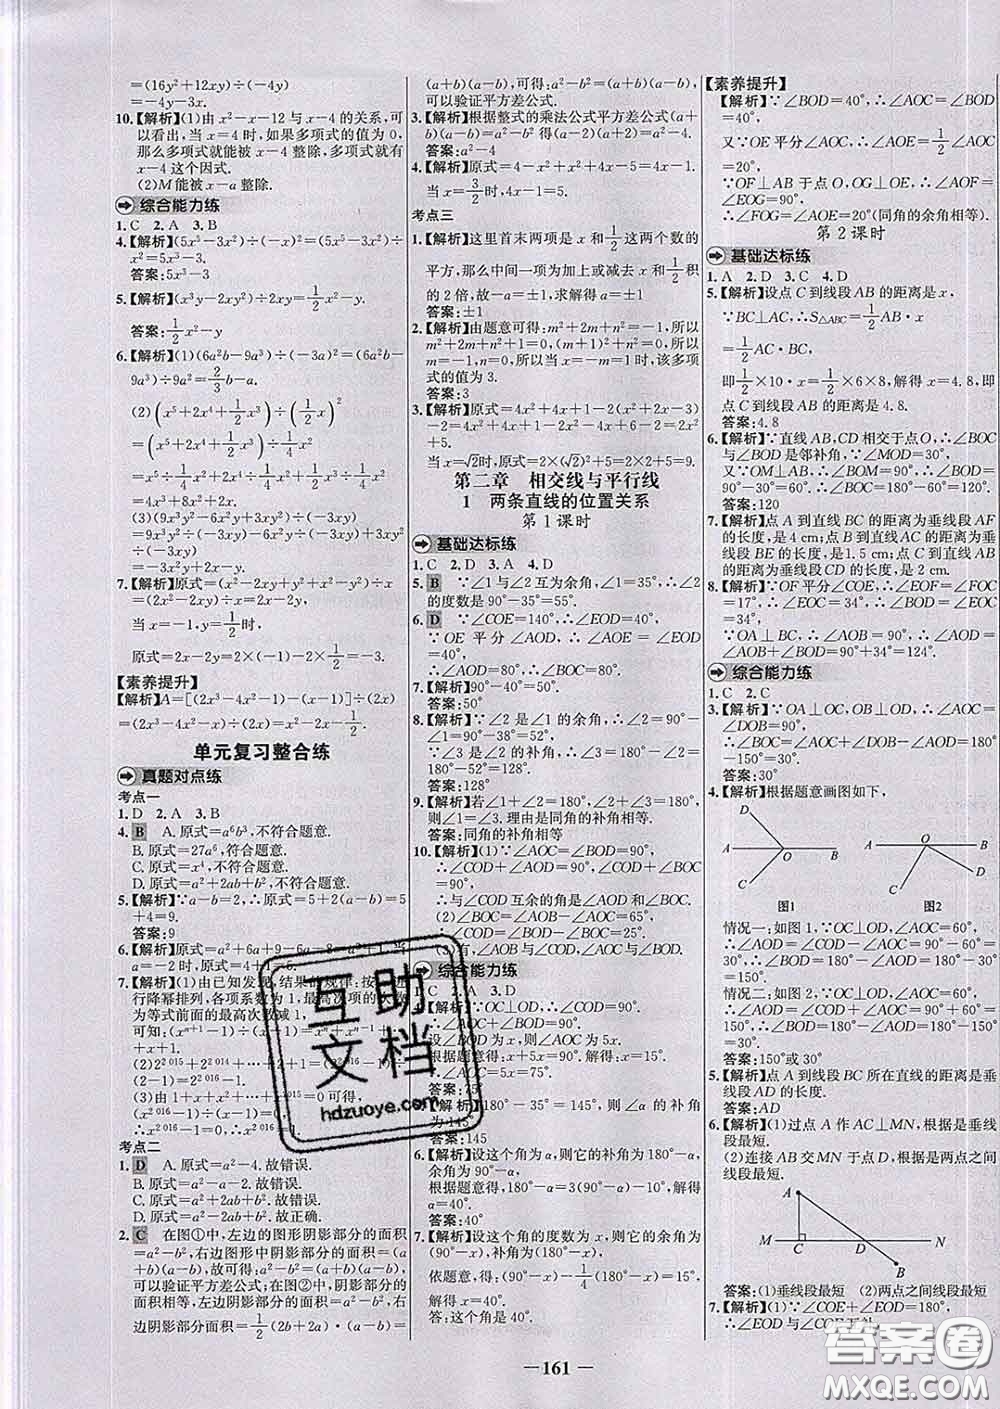 =(16y²+12xy)÷(−4y)
=−4y−3x.
10.【解析】(1)由 x²−x−12 与 x−4 的关系,可
以看出,当 x=4 时,如果多项式的值为 0,
那么多项式就能被 x−4 整除,多项式就有
x−4 这个因式.
(2)M 能被 x−a 整除.
综合能力练
1. C 2. A 3. B
4.【解析】(5x⁵−3x²)÷(−x)²=(5x⁵−3x²)÷
x²=5x³−3
答案:5x³−3
5.【解析】(x³y−2xy²)÷2xy=1/2x²−y.
答案:1/2x²−y
6.【解析】(1)(6a²b−9a³)÷(−3a)²=(6a²b−
9a³)÷9a²=2/3b−a.
(2)(x⁵+2x⁴+1/2x³)÷(1/2x)²
=(x⁵+2x⁴+1/2x³)÷1/4x²
=x⁵÷1/4x²+2x⁴÷1/4x²+1/2x³÷1/4x²
=4x³+8x²+2x.
(3)(9x³y−6x²y²−3x³y²)÷(−3x²y)
=9x³y÷(−3x²y)−6x²y²÷(−3x²y)−3x³y²÷
(−3x²y)
=−3x+2y+xy.
7.【解析】原式=(x²−2x+x²)÷x
=(2x²−2x)÷x=2x−2,
当 x=−1/2时,
原式=2x−2=2×(−1/2)−2=−3.
【素养提升】
【解析】A=[(2x³−4x²−1)−(x−1)]÷(2x)
=(2x³−4x²−x)÷(2x)=x²−2x−1/2.
单元复习整合练
真题对点练
考点一
1. D 2. A 3. B
4. B A. 原式=a⁶b³,不符合题意.
B. 原式=27a⁶,符合题意.
C. 原式=x⁴,不符合题意.
D. 原式=a²+2ab+b²,不符合题意.
5.【解析】∵a−b=2,∴原式=5+2(a−b)=5
+4=9.
答案:9
6.【解析】原式=a²+6a+9−6a−8=a²+1,当
a=−2 时,原式=4+1=5.
7.【解析】(1)由已知发现,结果的规律:按
进行降幂排列,各项系数为 1,最高次项的
为等式前面的最高次数减 1
可知:(xⁿ⁺¹−1)÷(x−1)=xⁿ+xⁿ⁻¹
+x+1.
(2)2²⁰¹⁵+2²⁰¹⁴+…
(2−1)=2²⁰¹⁶−1.
(3)由 1+x+x²+…=0 可得,
(x²⁰¹⁶−1)÷(x−1)
∴x²⁰¹⁶=1.
考点二
1. D A. 原式=a²−4. 故错误.
B. 原式=a²−a−2. 故错误.
C. 原式=a²+2ab+b². 故错误.
D. 原式=a²−2ab+b². 故正确.
2. C 在图①中,左边的图形阴影部分的面积
=a²−b²,右边图形中阴影部分的面积=(a
+b)(a−b),故可得:a²−b²=(a+b)(a−b),
可以验证平方差公式;在图②中,阴影部分的
面积相等,左边阴影部分的面积=a²−b²,
右边阴影部分面积=1/2(2b+2a)·(a−b)=
(a+b)(a−b),可得:a²−b²=(a+b)(a−b),
可以验证平方差公式.
3.【解析】根据整式的乘法公式平方差公式(a
+b)(a−b)=a²−b² 得(a−2)(a+2)=a²−4.
答案:a²−4
4.【解析】原式=4−x²+x²+4x−5=4x−1.
当 x=3/2时,原式=4x−1=5.
考点三
1.【解析】这里首末两项是 x 和1/2这两个数的
平方,那么中间一项为加上或减去 x 和1/2积
的 2 倍,故−a=±1,求解得 a=±1.
答案:±1
2.【解析】由题意可得:m²+2m+n²=−1,所以
m²+2m+1+n²=0,(m+1)²+n²=0,所以
m=−1,n=0,所以当 x=−m=1 时,该多项
式的值为 3.
答案:3
3.【解析】原式=4x²+4x+1−2(x²+2x−3)
−2=4x²+4x+1−2x²−4x+6−2=2x²
+5.
当 x=√2时,原式=2×(√2)²+5=2×2+5=9.
第二章 相交线与平行线
1 两条直线的位置关系
第 1 课时
基础达标练
1. C 2. D 3. A 4. C
5. B ∵∠1 与∠2 互为余角,∠1=35°,∴∠2
的度数是 90°−35°=55°.
6. D ∵∠COE=140°,∴∠EOD=40°,
∵OE 平分∠AOD,∴∠AOE=∠EOD
=40°;
∴∠AOD=80°,∴∠BOC=80°.
7.【解析】90°−40°=50°.
答案:50°
8.【解析】∵∠2 是∠1 的余角,∴∠2=90°−
∠1=90°−38°=52°,
∵∠3 是∠2 的补角,∴∠3=180°−∠2=
180°−52°=128°.
答案:128°
9.【解析】若∠1+∠2=180°,∠3+∠2=180°,
则∠1=∠3. 理由是同角的补角相等.
答案:同角的补角相等
10.【解析】(1)∵∠AOC=∠BOD=90°,
∴∠COD+∠AOD=90°,∠COD+∠BOC
=90°,
∴与∠COD 互余的角是∠AOD 和∠BOC.
(2)∠BOC=∠AOD=65°,
∠COD=∠BOD−∠BOC=25°.
(3)有,∠AOB 与∠COD,∠AOC 与∠BOD.
综合能力练
A 3. D
∵OC⊥OD,∴∠COD=90°,
设∠BOD 为 x,则∠AOC 为 5x.
根据题意得:x+5x=90°. 解得:x=15°.
∴∠AOC=5x=75°.
答案:75
【解析】180°−35°=145°,则∠α 的补角
为 145°.
答案:145
6.【解析】设这个角为 α,则它的补角为 180°−α,
余角为 90°−α,
根据题意得,180°−α=3(90°−α)−10°,
解得 α=40°.
答案:40°
7.【解析】设这个角的度数为 x,则它的余角为
(90°−x),补角为(180°−x),
依题意,得:(90°−x)−1/4(180°−x)=15°.
解得:x=40°.
答:这个角是 40°.
【素养提升】
【解析】∵∠BOD=40°,∴∠AOC=∠BOD
=40°,
又∵OE 平分∠AOC,∴∠AOE=1/2∠AOC
=20°.
∵OF⊥AB 于点 O,OG⊥OE,∴∠AOF=
∠EOG=90°,
∴∠FOG=∠AOE=20°(同角的余角相等).
第 2 课时
基础达标练
1. A 2. D 3. C 4. D
5.【解析】设点 C 到线段 AB 的距离是 x,
∵BC⊥AC,∴S△ABC=1/2AB·x
=1/2AC·BC,
即1/2×10·x=1/2×6×8,解得 x=4.8,即
点 C 到线段 AB 的距离是 4.8.
答案:4.8
6.【解析】∵直线 AB,CD 相交于点 O,∴∠BOC
与∠BOD 是邻补角,∵∠MOD=30°,
又∵OM⊥AB,∴∠BOM=90°,∴∠BOD=
90°−30°=60°,∴∠BOC=180°−60°=120°.
答案:120
7.【解析】点 A 到直线 BC 的距离为垂线段 AF
的长度,是 4 cm;点 B 到直线 AC 的距离为垂
线段 BE 的长度,是 1.5 cm;点 C 到直线 AB
的距离为垂线段 CD 的长度,是 2 cm.
8.【解析】∵OF 平分∠COE,∴∠EOF=∠FOC
=17°,∴∠EOC=34°,∴∠BOD=∠EOC
=34°,
∵OA⊥BC,∴∠AOB=90°,∴∠AOD=
∠AOB+∠BOD=90°+34°=124°.
综合能力练
1. C 2. C
3.【解析】∵OA⊥OC,OB⊥OD,∴∠AOC=
∠DOB=90°,
∴∠BOC=∠AOC+∠DOB−∠AOD=90°
+90°−150°=30°.
答案:30°
4.【解析】根据题意画图如下,
D A O B C
图1
A O B C D
图2
情况一:如图 1,∵OC⊥OD,∠AOC=60°,
∴∠AOD=∠COD−∠AOC=90°−60°=
30°,∴∠BOD=180°−∠AOD=180°−30°
=150°.
情况二:如图 2,∵OC⊥OD,∠AOC=60°,
∴∠AOD=∠COD+∠AOC=90°+60°=
150°,∴∠BOD=180°−∠AOD=180°−150°
=30°.
答案:150°或 30°
5.【解析】点 A 到线段 BC 所在直线的距离是垂
线段 AD 的长度.
答案:AD
6.【解析】(1)过点 A 作 AC⊥MN,根据:垂线
段最短.
(2)连接 AB 交 MN 于点 D,根据:两点之间
线段最短.
A M C D N B
答案:(1)垂线段最短 (2)两点之间线段最短
7.【解析】(1)∵∠COE+∠EOD=180°,
∴∠EOD 与∠COE 互补,
— 161 —
互助
文档
hdzuoye.com
答案圈
MXQE.COM